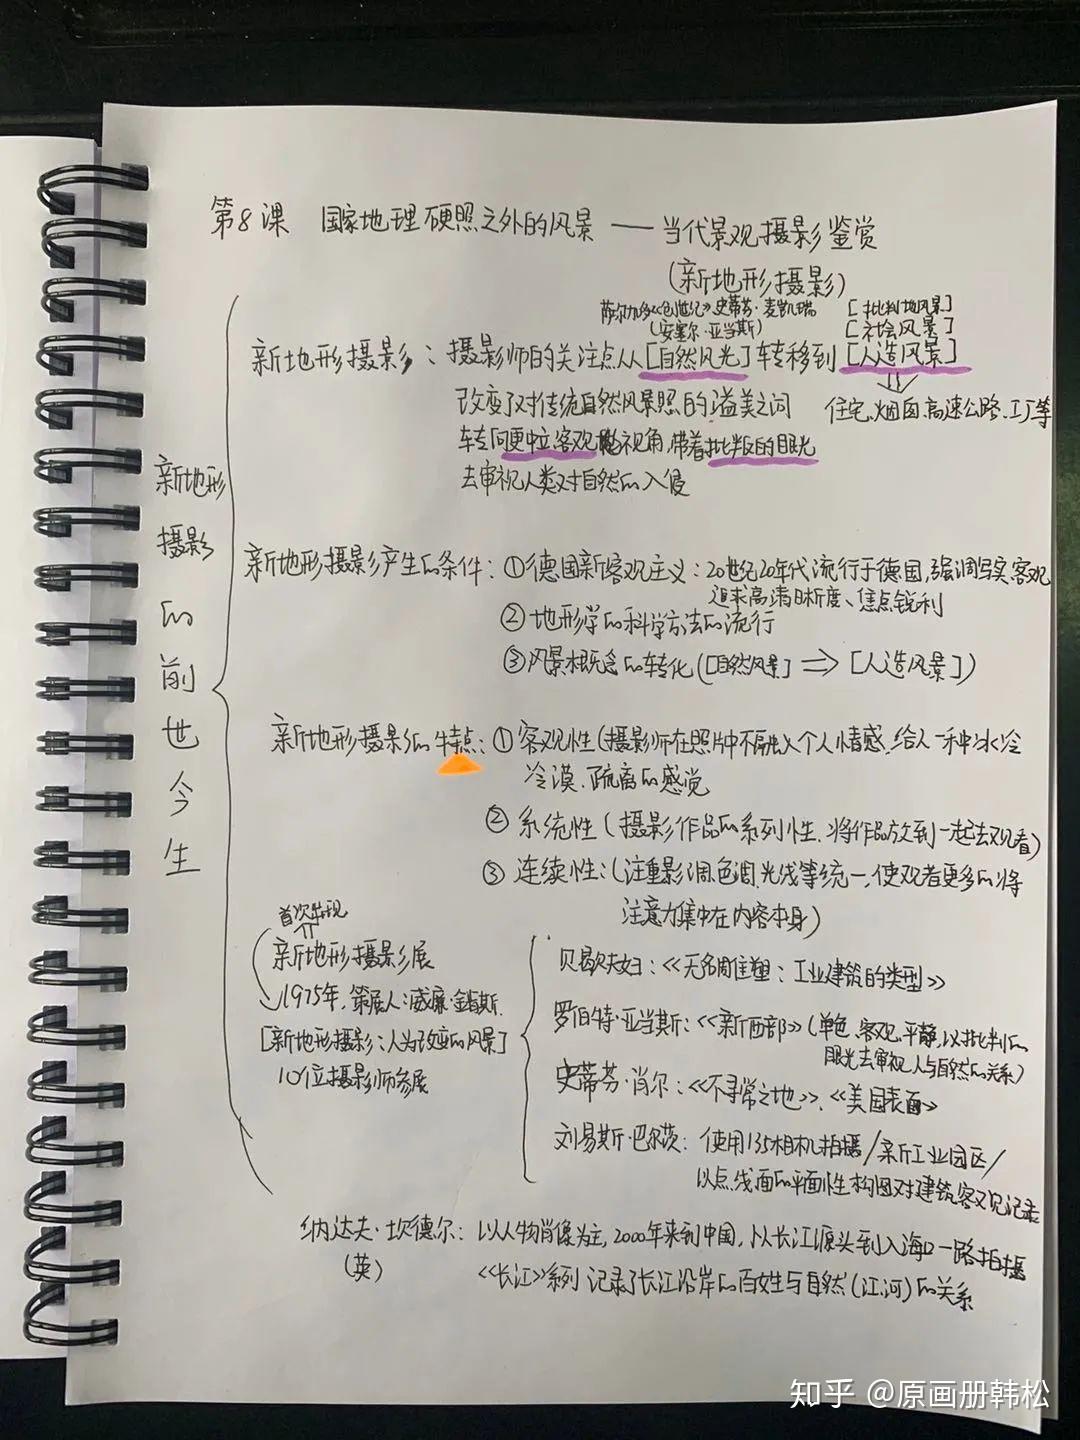 第8课 国家地理硬照之外的风景——当代景观摄影鉴赏
(新地形摄影)
萨尔加多《创世纪》史蒂芬·麦凯瑞 [批判地风景]
(安塞尔·亚当斯) [社会风景]
新地形摄影:摄影师的关注点从[自然风光]转移到[人造风景]
改变了对传统自然风景照的溢美之词 住宅、烟囱、高速公路、工厂等
转向更中立、客观的视角,带着批判的目光
去审视人类对自然的入侵
新地形摄影的前世今生
新地形摄影产生的条件:①德国新客观主义:20世纪20年代流行于德国,强调写实、客观
追求高清晰度、焦点锐利
②地形学的科学方法的流行
③风景概念的转化([自然风景]⇒[人造风景])
新地形摄影的特点:①客观性(摄影师在照片中不融入个人情感,给人一种冰冷
冷漠、疏离的感觉
②系统性(摄影作品的系列性,将作品放到一起去观看)
③连续性:(注重影调、色调、光线等统一,使观者更多的将
注意力集中在内容本身)
首次出现
新地形摄影展
1975年,策展人:威廉·詹金斯
[新地形摄影:人为改变的风景]
10位摄影师参展
贝歇夫妇:《无名雕塑:工业建筑的类型》
罗伯特·亚当斯:《新西部》(单色、客观、平静,以批判的
眼光去审视人与自然的关系)
史蒂芬·肖尔:《不寻常之地》、《美国表面》
刘易斯·巴尔茨:使用135相机拍摄/新工业园区/
以点线面的平面性构图对建筑客观记录
纳达夫·坎德尔:以人物肖像为主,2000年来到中国,从长江源头到入海口一路拍摄
(英) 《长江》系列 记录了长江沿岸的百姓与自然(江、河)的关系
知乎 @原画册韩松